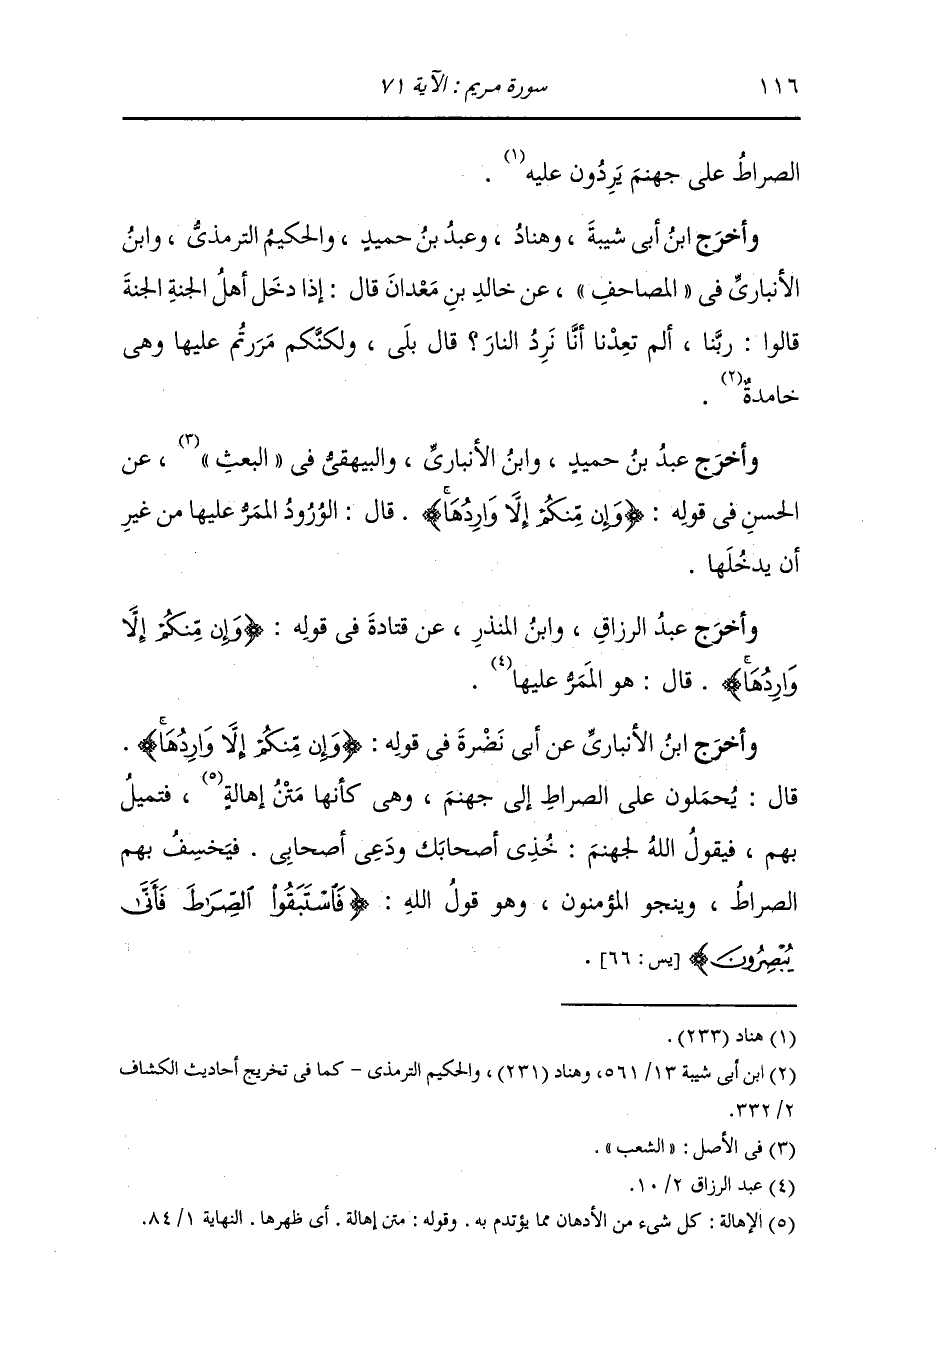 ١١٦ سورة مريم : الآية ٧١
الصراطُ على جهنمَ يَرِدُون عليه(١) .
وأخرَج ابنُ أبى شيبةَ ، وهنادُ ، وعبدُ بنُ حميدٍ ، والحكيمُ الترمذىُّ ، وابنُ
الأنبارىِّ فى « المصاحفِ » ، عن خالدِ بنِ مَعْدانَ قال : إذا دخَل أهلُ الجنةِ الجنةَ
قالوا : ربَّنا ، ألم تعِدْنا أنَّا نَرِدُ النارَ ؟ قال بلَى ، ولكنَّكم مَرَرتُم عليها وهى
خامدةٌ(٢) .
وأخرَج عبدُ بنُ حميدٍ ، وابنُ الأنبارىِّ ، والبيهقىُّ فى « البعثِ »(٣) ، عن
الحسنِ فى قولِه : ﴿وَإِن مِّنكُمْ إِلَّا وَارِدُهَاۚ﴾ . قال : الوُرُودُ الممَرُّ عليها من غيرِ
أن يدخُلَها .
وأخرَج عبدُ الرزاقِ ، وابنُ المنذرِ ، عن قتادةَ فى قولِه : ﴿وَإِن مِّنكُمْ إِلَّا
وَارِدُهَاۚ﴾ . قال : هو المَمَرُّ عليها(٤) .
وأخرَج ابنُ الأنبارىِّ عن أبى نَضْرةَ فى قولِه : ﴿وَإِن مِّنكُمْ إِلَّا وَارِدُهَاۚ﴾ .
قال : يُحمَلون على الصراطِ إلى جهنمَ ، وهى كأنها مَتْنُ إهالةٍ(٥) ، فتميلُ
بهم ، فيقولُ اللهُ لجهنمَ : خُذِى أصحابَك ودَعِى أصحابِى . فيَخسِفُ بهم
الصراطُ ، وينجو المؤمنون ، وهو قولُ اللهِ : ﴿فَٱسْتَبَقُوا۟ ٱلصِّرَٰطَ فَأَنَّىٰ
يُبْصِرُونَ﴾ [يس : ٦٦] .
(١) هناد (٢٣٣) .
(٢) ابن أبى شيبة ١٣/ ٥٦١، وهناد (٢٣١) ، والحكيم الترمذى - كما فى تخريج أحاديث الكشاف
٢/ ٣٣٢.
(٣) فى الأصل : « الشعب » .
(٤) عبد الرزاق ٢/ ١٠.
(٥) الإهالة : كل شىء من الأدهان مما يؤتدم به . وقوله : متن إهالة . أى ظهرها . النهاية ١/ ٨٤.